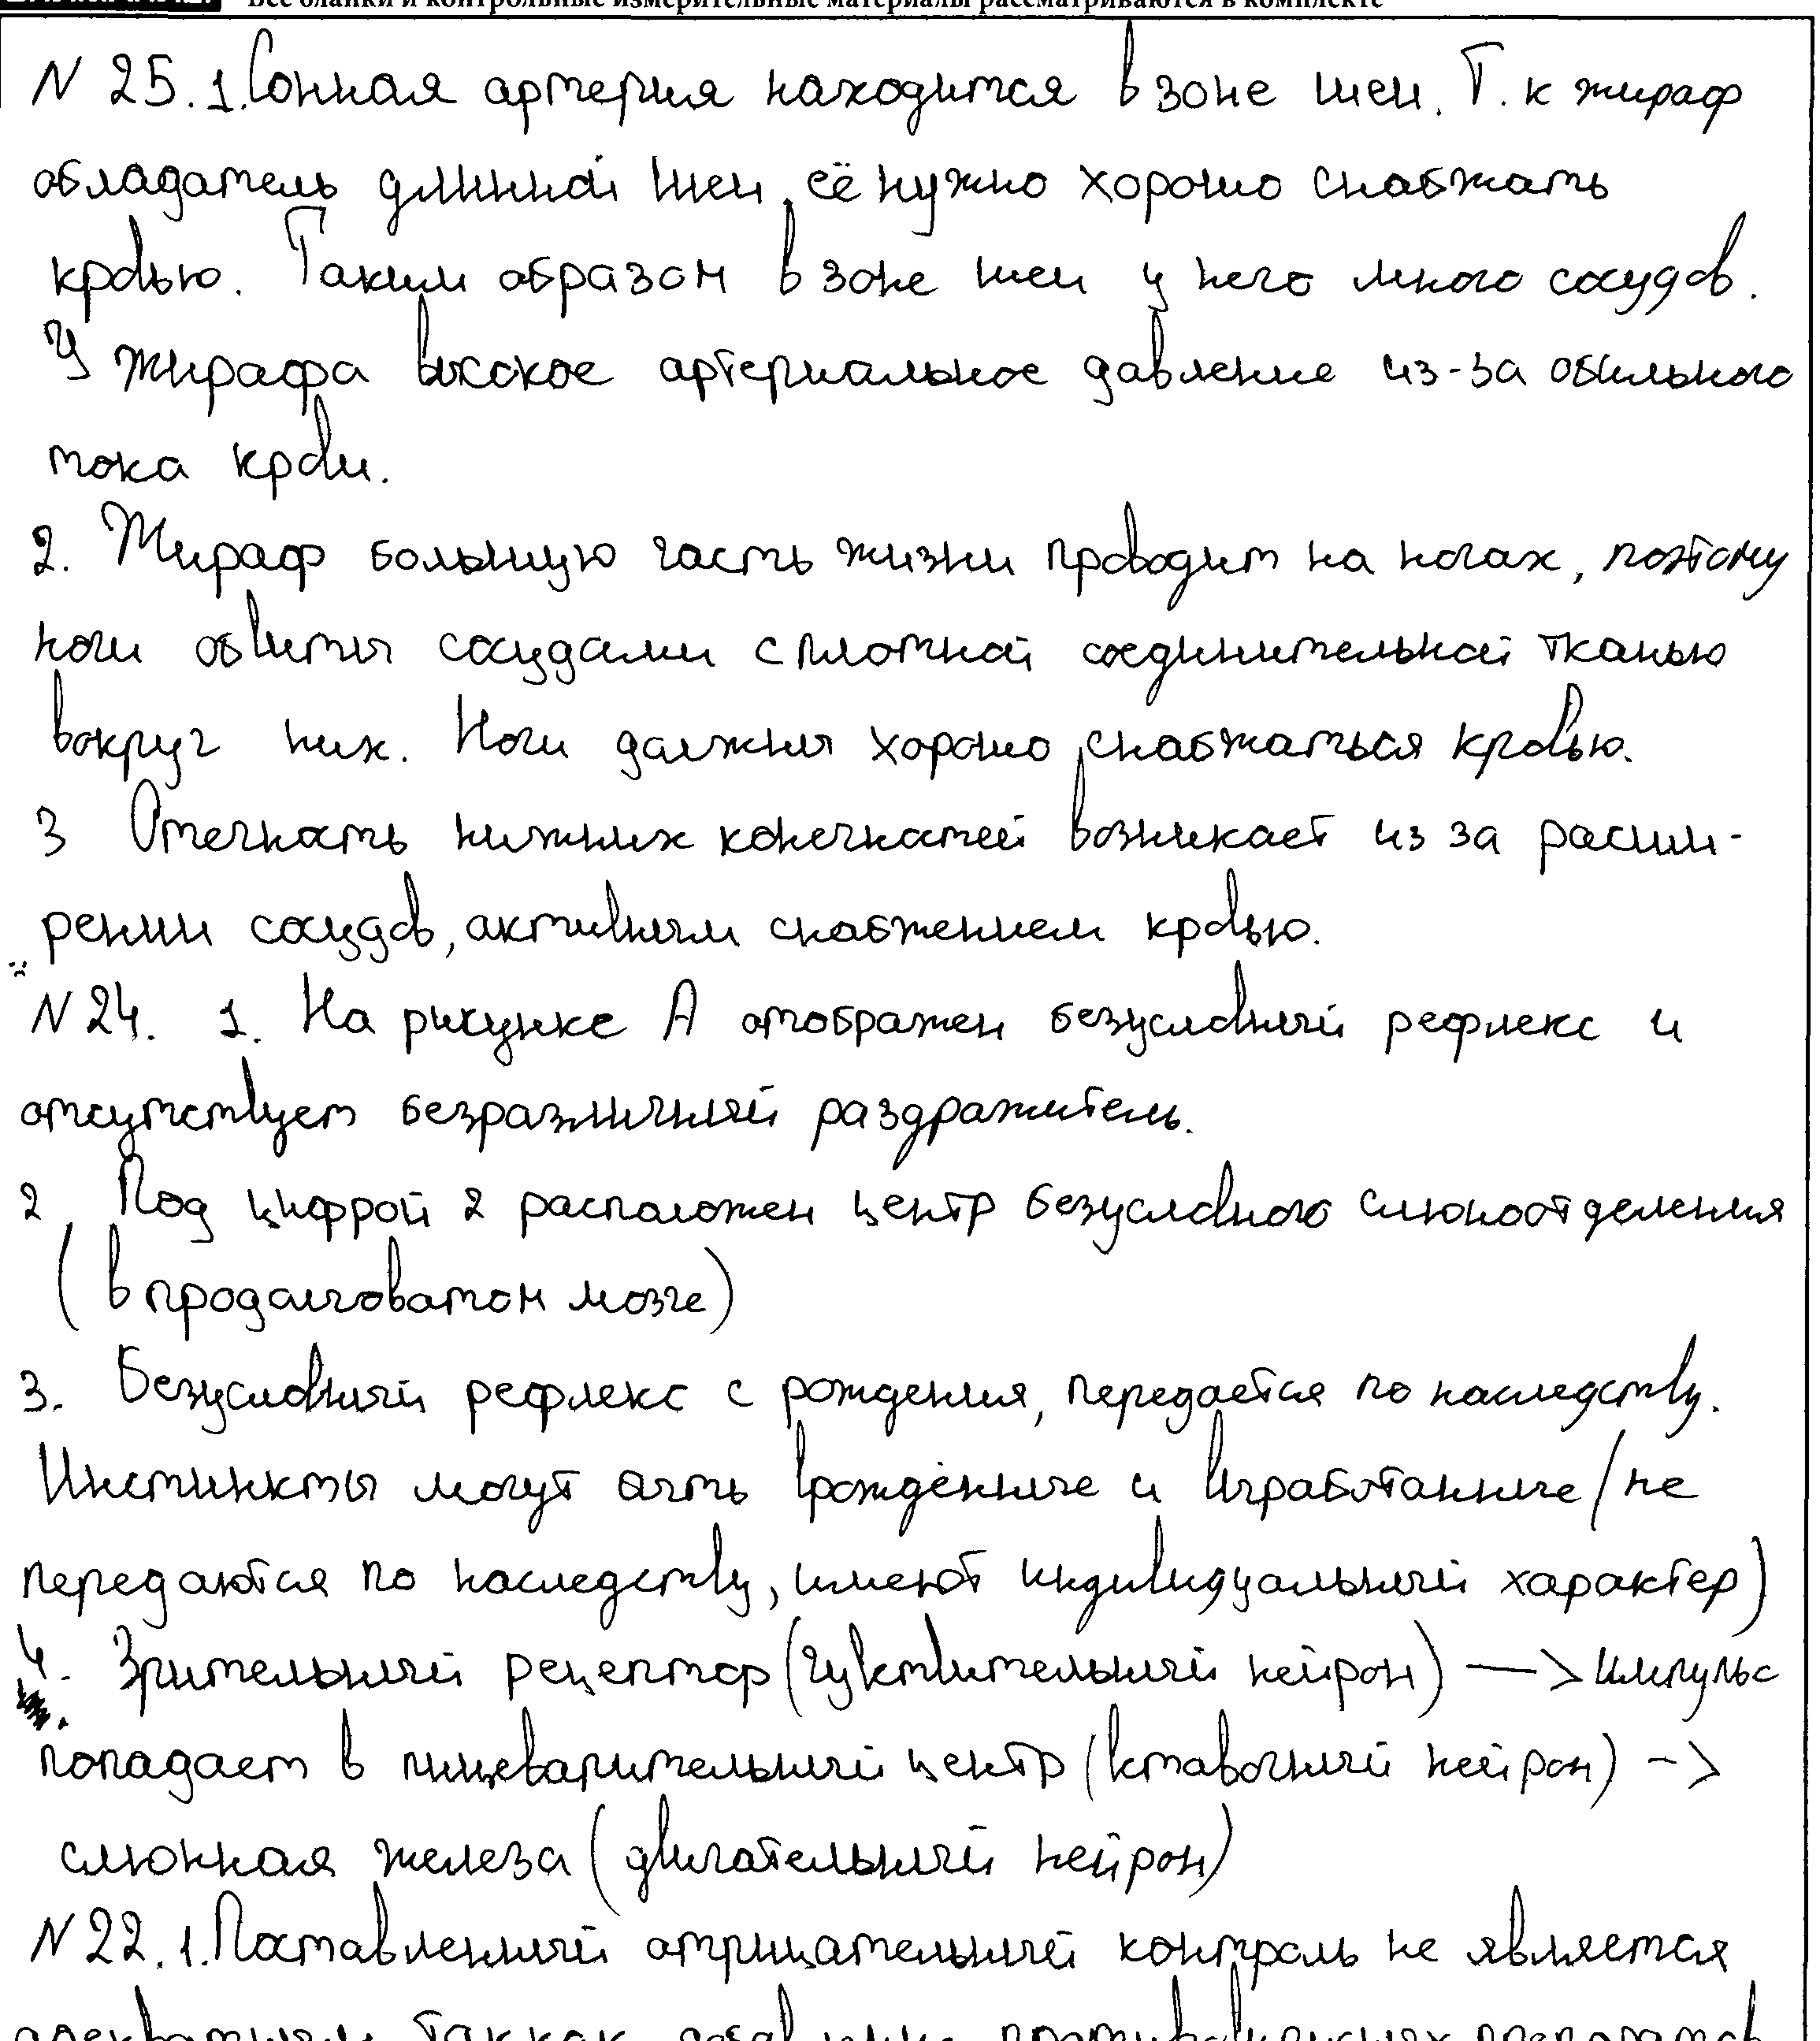 Все бланки и контрольные измерительные материалы рассматриваются в комплекте
N 25. 1. Сонная артерия находится в зоне шеи. Т. к жираф
обладатель длинной шеи, её нужно хорошо снабжать
кровью. Таким образом в зоне шеи у него много сосудов.
У жирафа высокое артериальное давление из-за обильного
тока крови.
2. Жираф большую часть жизни проводит на ногах, поэтому
ноги обвиты сосудами с плотной соединительной тканью
вокруг них. Ноги должны хорошо снабжаться кровью.
3 Отечность нижних конечностей возникает из за расши-
рении сосудов, активным снабжением кровью.
N 24. 1. На рисунке А отображен безусловный рефлекс и
отсутствует безразличный раздражитель.
2 Под цифрой 2 расположен центр безусловного слюноотделения
(в продолговатом мозге)
3. Безусловный рефлекс с рождения, передаётся по наследству.
Инстинкты могут быть врождённые и выработанные/не
передаются по наследству, имеют индивидуальный характер)
4. Зрительный рецептор (чувствительный нейрон) —> импульс
попадает в пищеварительный центр (вставочный нейрон) ->
слюнная железа (двигательный нейрон)
N 22. 1. Поставленный отрицательный контроль не является
адекватным так как